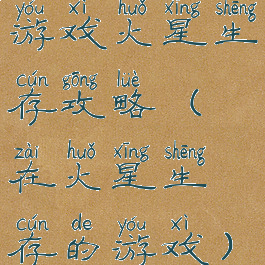 yóu xì huǒ xīng shēng
游戏火星生
cún gōng lüè
存攻略（
zài huǒ xīng shēng
在火星生
cún de yóu xì
存的游戏）